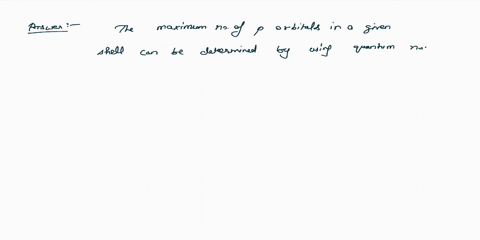 Answer:- The maximum no of p orbitals in a given
shell can be determined by using quantum no.